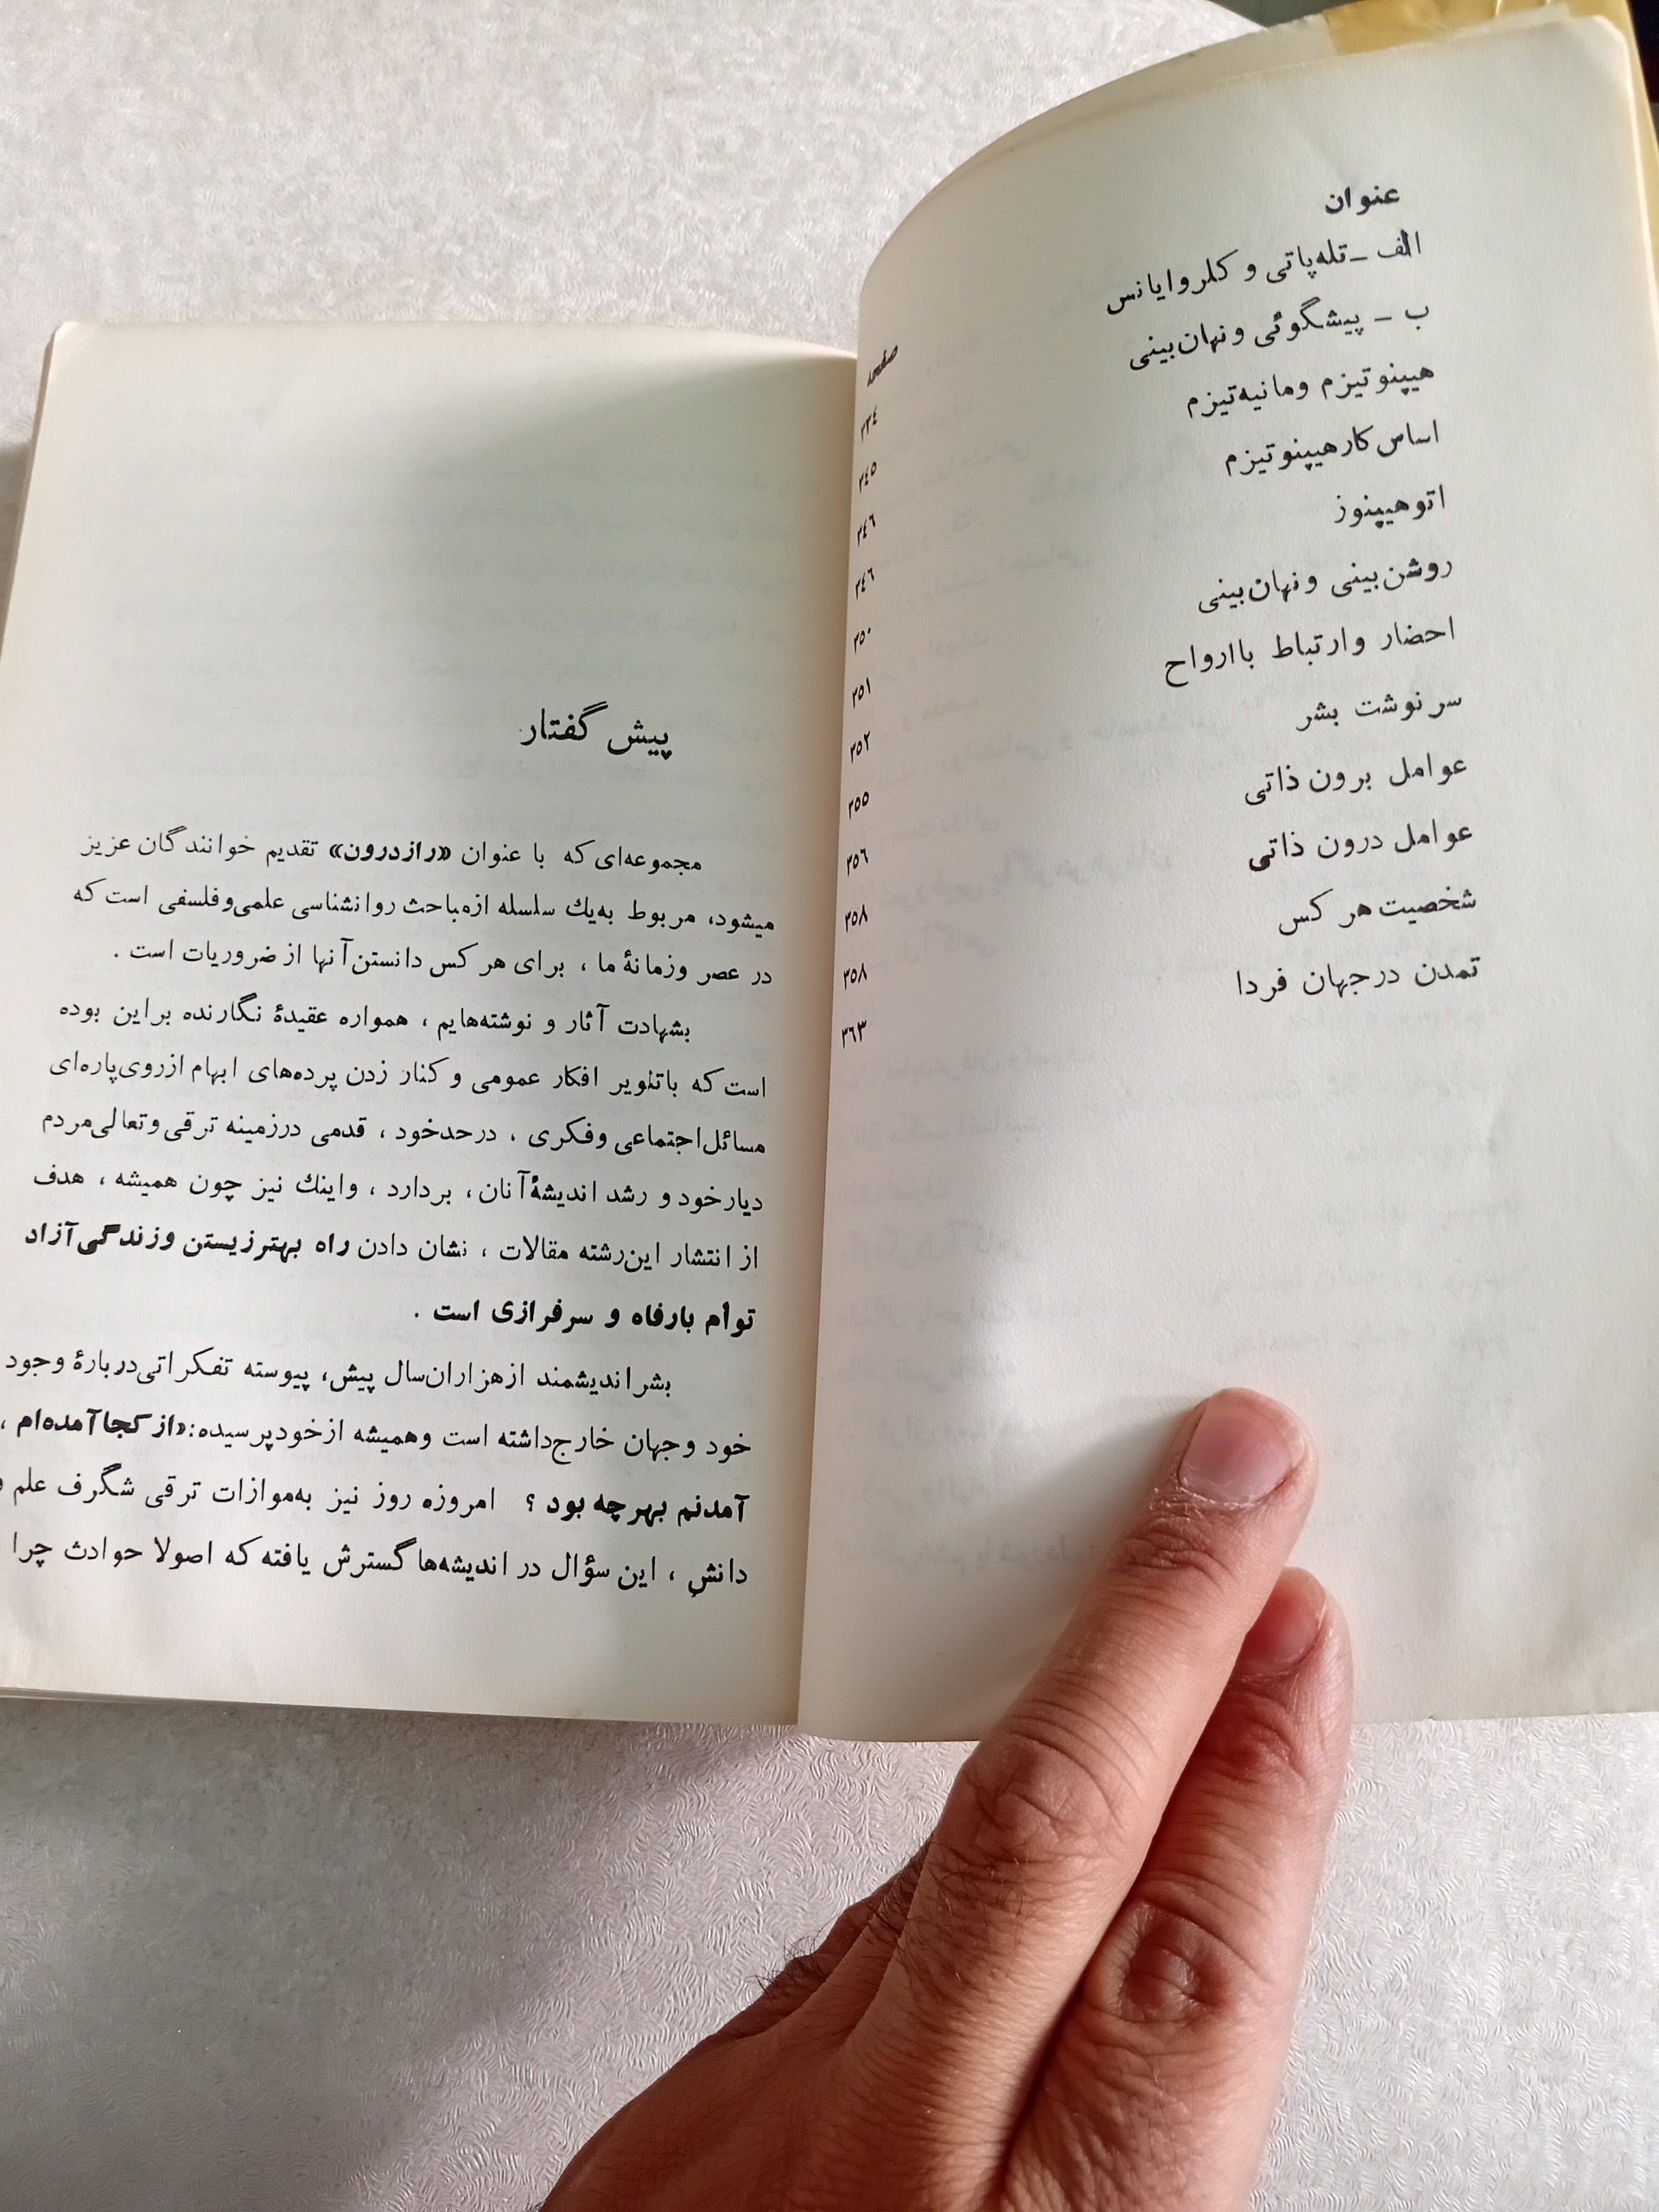 عنوان
الف ـ تله‌پاتی و کلروایانس
ب ـ پیشگوئی ونهان‌بینی
هیپنوتیزم ومانیه‌تیزم
اساس کار هیپنوتیزم
اتوهیپنوز
روشن‌بینی ونهان‌بینی
احضار وارتباط باارواح
سرنوشت بشر
عوامل برون ذاتی
عوامل درون ذاتی
شخصیت هر کس
تمدن درجهان فردا
صفحه
۲۳٤
۲٤٥
۲٤٦
۲٤٦
۲٥۰
۲٥۱
۲٥۲
۲٥٥
۲٥٦
۲٥۸
۲٥۸
۳٦۳
پیش گفتار
مجموعه‌ای که با عنوان «رازدرون» تقدیم خوانندگان عزیز
میشود، مربوط به‌یك سلسله ازمباحث روانشناسی علمی‌وفلسفی است که
در عصر وزمانهٔ ما ، برای هر کس دانستن‌آنها از ضروریات است .
بشهادت آثار و نوشته‌هایم ، همواره عقیدهٔ نگارنده براین بوده
است که باتنویر افکار عمومی و کنار زدن پرده‌های ابهام ازروی‌پاره‌ای
مسائل‌اجتماعی وفکری ، درحدخود ، قدمی درزمینه ترقی‌وتعالی‌مردم
دیارخود و رشد اندیشهٔ‌آنان، بردارد ، واینك نیز چون همیشه ، هدف
از انتشار این‌رشته مقالات ، نشان دادن راه بهترزیستن وزندگی‌آزاد
توأم بارفاه و سرفرازی است .
بشراندیشمند ازهزاران‌سال پیش، پیوسته تفکراتی‌دربارهٔ وجود
خود وجهان خارج‌داشته است وهمیشه ازخودپرسیده:«از کجاآمده‌ام ،
آمدنم بهرچه بود ؟ امروزه روز نیز به‌موازات ترقی شگرف علم و
دانش ، این سؤال در اندیشه‌هاگسترش یافته که اصولا حوادث چرا